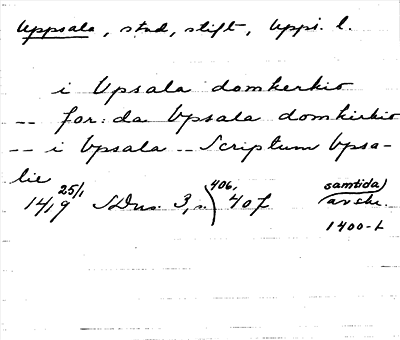 Uppsala, stad, stift, Uppi. l.
i Upsala domkerkio
-- for: da Upsala domkirkio
-- i Upsala -- Scriptum Upsa-
lie
1419 25/1 SDns. 3, s. 406, 407 samtida avskr.
1400-t